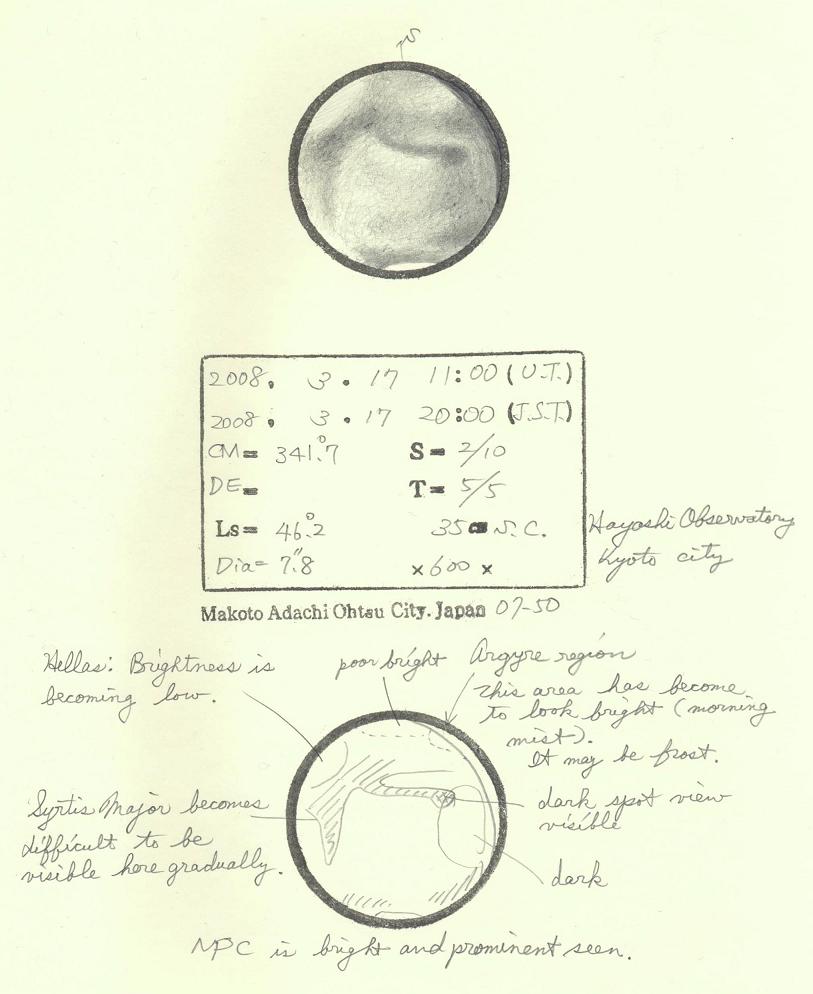 S
2008. 3. 17 11:00 (U.T.)
2008. 3. 17 20:00 (J.S.T.)
CM= 341.°7 S= 2/10
DE= T= 5/5
Ls= 46.°2 35 S.C.
Dia= 7."8 ×600 ×
Hayashi Observatory
Kyoto city
Makoto Adachi Ohtsu City. Japan 07-50
Hellas: Brightness is
becoming low.
poor bright
Argyre region
This area has become
to look bright (morning
mist).
It may be frost.
Syrtis Major becomes
difficult to be
visible here gradually.
dark spot view
visible
dark
NPC is bright and prominent seen.